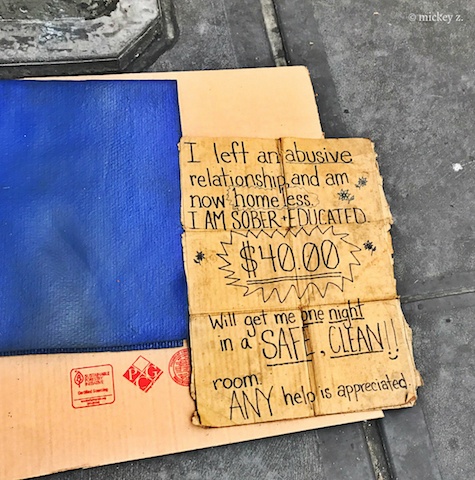 © mickey z.
I left an abusive
relationship, and am
now homeless.
I AM SOBER + EDUCATED.
$40.00
Will get me one night
in a SAFE, CLEAN!!
room.
ANY help is appreciated.
SUSTAINABLE
FORESTRY
INITIATIVE
Certified Sourcing
PAC